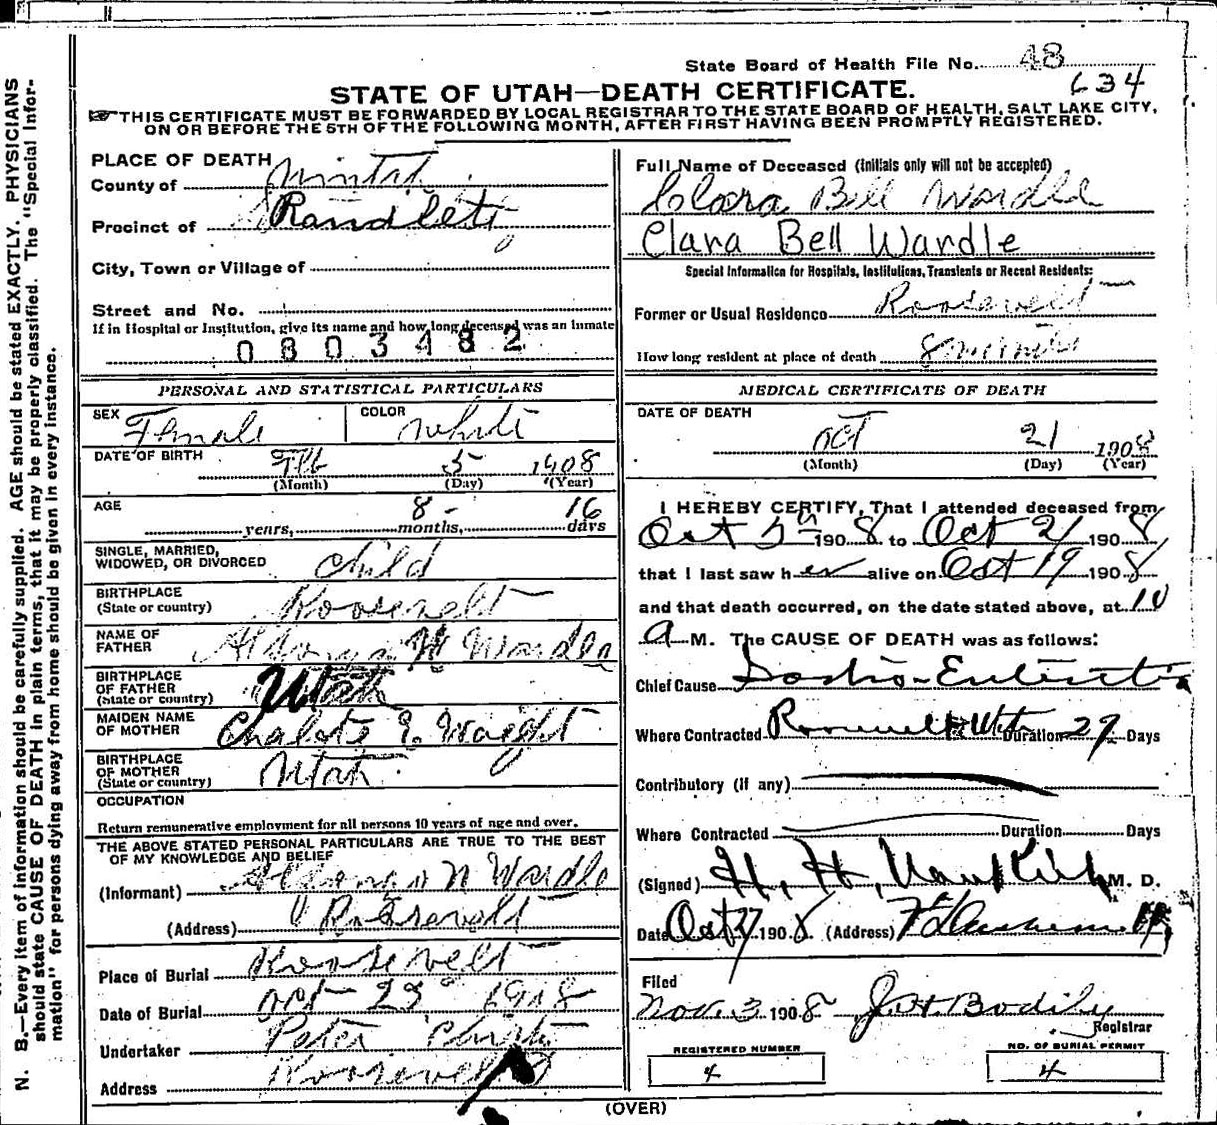 State Board of Health File No. 48
634
STATE OF UTAH—DEATH CERTIFICATE.
THIS CERTIFICATE MUST BE FORWARDED BY LOCAL REGISTRAR TO THE STATE BOARD OF HEALTH, SALT LAKE CITY,
ON OR BEFORE THE 5TH OF THE FOLLOWING MONTH, AFTER FIRST HAVING BEEN PROMPTLY REGISTERED.
N. B.—Every item of information should be carefully supplied. AGE should be stated EXACTLY. PHYSICIANS
should state CAUSE OF DEATH in plain terms, that it may be properly classified. The "Special Infor-
mation" for persons dying away from home should be given in every instance.
PLACE OF DEATH
County of
Precinct of Randlett
City, Town or Village of
Street and No.
If in Hospital or Institution, give its name and how long deceased was an inmate
0803482
PERSONAL AND STATISTICAL PARTICULARS
SEX Female COLOR White
DATE OF BIRTH Feb 5 1908
(Month) (Day) (Year)
AGE 8 - 16
years, months, days
SINGLE, MARRIED,
WIDOWED, OR DIVORCED Child
BIRTHPLACE
(State or country) Roosevelt
NAME OF
FATHER Wardle
BIRTHPLACE
OF FATHER
(State or country) Utah
MAIDEN NAME
OF MOTHER
BIRTHPLACE
OF MOTHER
(State or country) Utah
OCCUPATION
Return remunerative employment for all persons 10 years of age and over.
THE ABOVE STATED PERSONAL PARTICULARS ARE TRUE TO THE BEST
OF MY KNOWLEDGE AND BELIEF
(Informant) Wardle
(Address) Roosevelt
Place of Burial Roosevelt
Date of Burial Oct 23 1908
Undertaker Peter
Address Roosevelt
Full Name of Deceased (Initials only will not be accepted)
Clara Bell Wardle
Clara Bell Wardle
Special Information for Hospitals, Institutions, Transients or Recent Residents:
Former or Usual Residence Roosevelt
How long resident at place of death
MEDICAL CERTIFICATE OF DEATH
DATE OF DEATH
Oct 21 1908
(Month) (Day) (Year)
I HEREBY CERTIFY, That I attended deceased from
Oct 5th 1908 to Oct 21 1908
that I last saw her alive on Oct 19 1908
and that death occurred, on the date stated above, at 10
A M. The CAUSE OF DEATH was as follows:
Chief Cause
Where Contracted Roosevelt Utah Duration 29 Days
Contributory (if any)
Where Contracted Duration Days
(Signed) H. H. M. D.
Date Oct 1908 (Address)
Filed
Nov. 3 1908 Bodily
Registrar
REGISTERED NUMBER
4
NO. OF BURIAL PERMIT
4
(OVER)